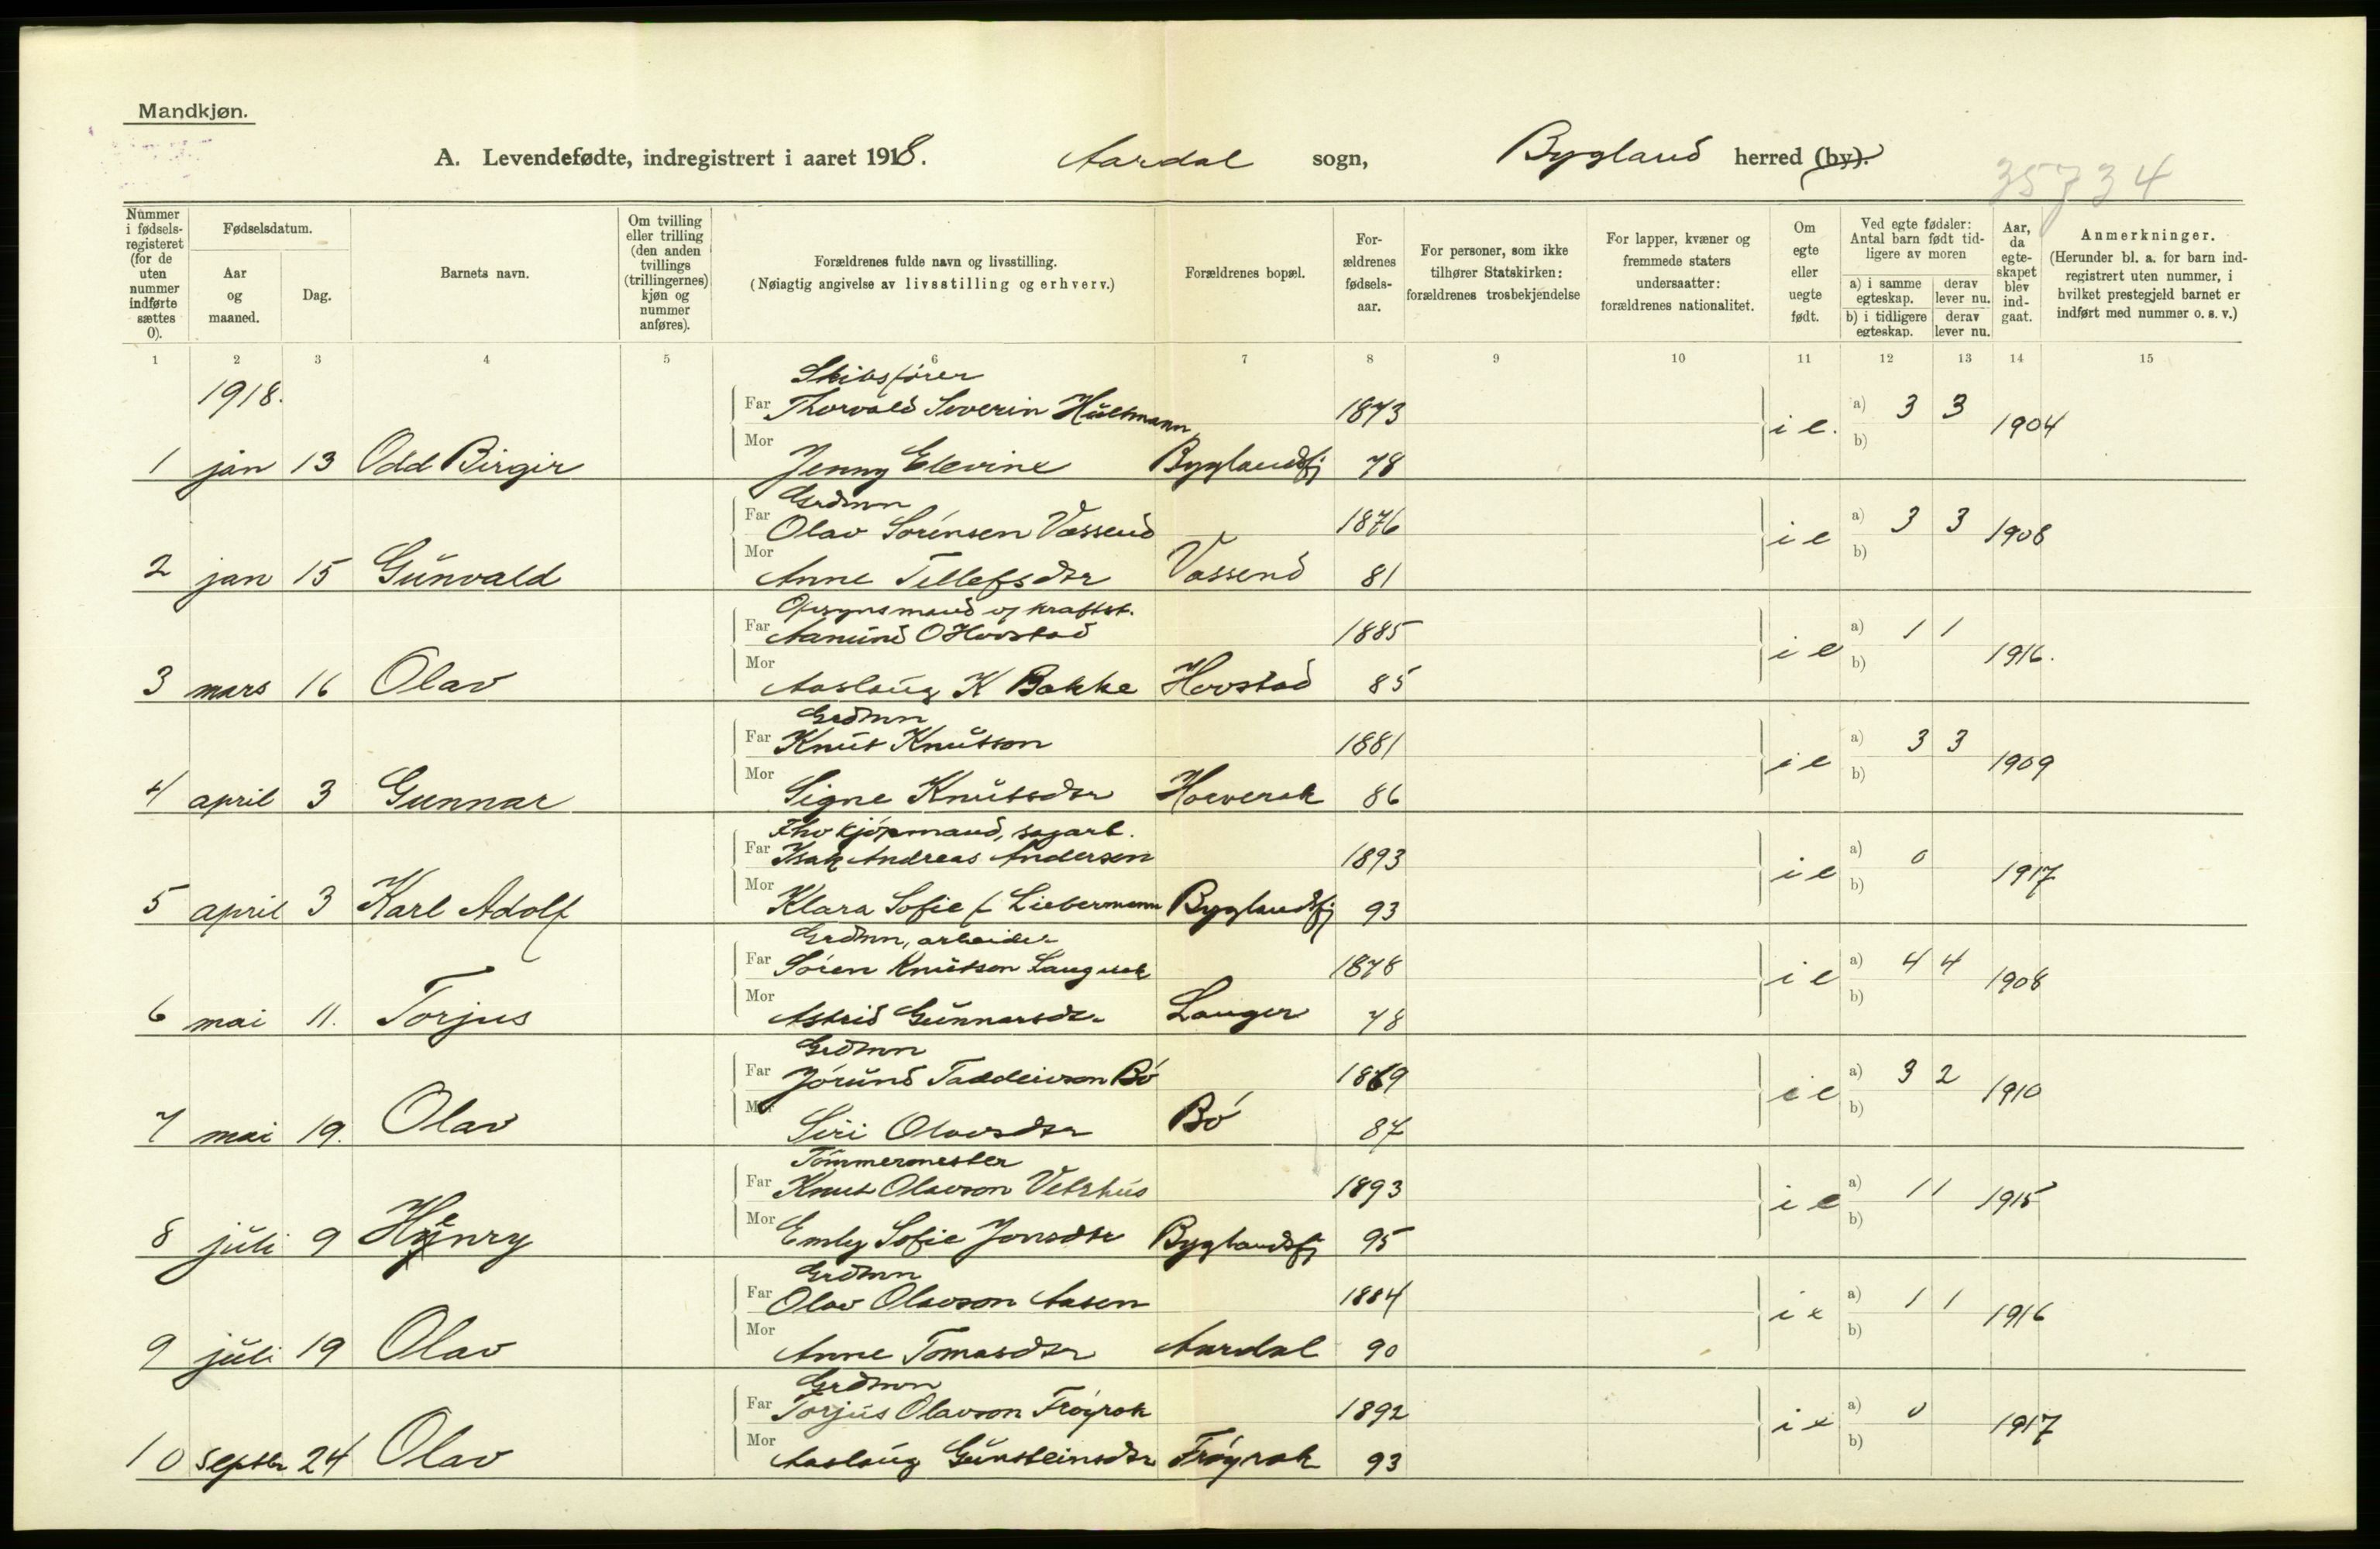 Mandkjøn.
A. Levendefødte, indregistrert i aaret 1918. Aardal sogn, Bygland herred (by).
35734
Nummer i fødsels-registeret (for de uten nummer indførte sættes 0).
Fødselsdatum.
Aar og maaned.
Dag.
Barnets navn.
Om tvilling eller trilling (den anden tvillings (trillingernes) kjøn og nummer anføres).
Forældrenes fulde navn og livsstilling.
(Nøiagtig angivelse av livsstilling og erhverv.)
Forældrenes bopæl.
For-ældrenes fødsels-aar.
For personer, som ikke tilhører Statskirken: forældrenes trosbekjendelse
For lapper, kvæner og fremmede staters undersaatter: forældrenes nationalitet.
Om egte eller uegte født.
Ved egte fødsler: Antal barn født tid-ligere av moren
a) i samme egteskap.
derav lever nu.
b) i tidligere egteskap.
derav lever nu.
Aar, da egte-skapet blev ind-gaat.
Anmerkninger.
(Herunder bl. a. for barn ind-registrert uten nummer, i hvilket prestegjeld barnet er indført med nummer o. s. v.)
1 2 3 4 5 6 7 8 9 10 11 12 13 14 15
1918.
Skibsfører
Far Thorvald Severin Hultmann 1873 i e. a) 3 3 1904
b)
1 jan 13 Odd Birgir Mor Jenny Elevine Byglandsfj 78
Grdmn
Far Olav Sørensen Vassend 1876 i e a) 3 3 1908
b)
2 jan 15 Gunvald Mor Anne Tellefsdtr Vassend 81
Opsynsmand v/ kraftst.
Far Aamund O Hovstad 1885 i e a) 1 1 1916.
b)
3 mars 16 Olav Mor Aaslaug K Bakke Hovstad 85
Grdmn
Far Knut Knutson 1881 i e a) 3 3 1909
b)
4 april 3 Gunnar Mor Signe Knutsdtr 86
kjøpmand, sagarb.
Far Isak Andreas Andersen 1893 i e a) 0 1917
b)
5 april 3 Karl Adolf Mor Klara Sofie f Liebermann Byglandsfj 93
Grdmn, arbeider
Far Søren Knutson 1878 i e a) 4 4 1908
b)
6 mai 11. Torjus Mor Astrid Gunnarsdtr 78
Grdmn
Far Jørund Taddeivson Bø 1869 i e a) 3 2 1910
b)
7 mai 19. Olav Mor Siri Olavsdtr Bø 87
Tømmermester
Far Knut Olavson Vetrhus 1893 i e a) 1 1 1915
b)
8 juli 9 Henry Mor Emly Sofie Jonsdtr Byglandsfj 95
Grdmn
Far Olav Olavson Aasen 1884 i e a) 1 1 1916
b)
9 juli 19 Olav Mor Anne Tomasdtr Aardal 90
Grdmn
Far Torjus Olavson Frøyrak 1892 i e a) 0 1917
b)
10 septbr 24 Olav Mor Aaslaug Gunsteinsdtr Frøyrak 93